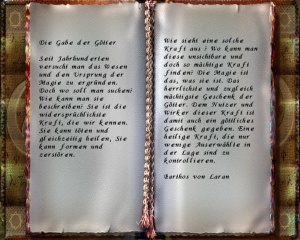 Die Gabe der Götter
Seit Jahrhunderten
versucht man das Wesen
und den Ursprung der
Magie zu ergründen.
Doch wo soll man suchen?
Wie kann man sie
beschreiben? Sie ist die
widersprüchlichste
Kraft, die wir kennen.
Sie kann töten und
gleichzeitig heilen, Sie
kann formen und
zerstören.
Wie sieht eine solche
Kraft aus? Wo kann man
diese unsichtbare und
doch so mächtige Kraft
finden? Die Magie ist
das, was sie ist. Das
herrlichste und zugleich
mächtigste Geschenk der
Götter. Dem Nutzer und
Wirker dieser Kraft ist
damit auch ein göttliches
Geschenk gegeben. Eine
heilige Kraft, die nur
wenige Auserwählte in
der Lage sind zu
kontrollieren.
Barthos von Laran